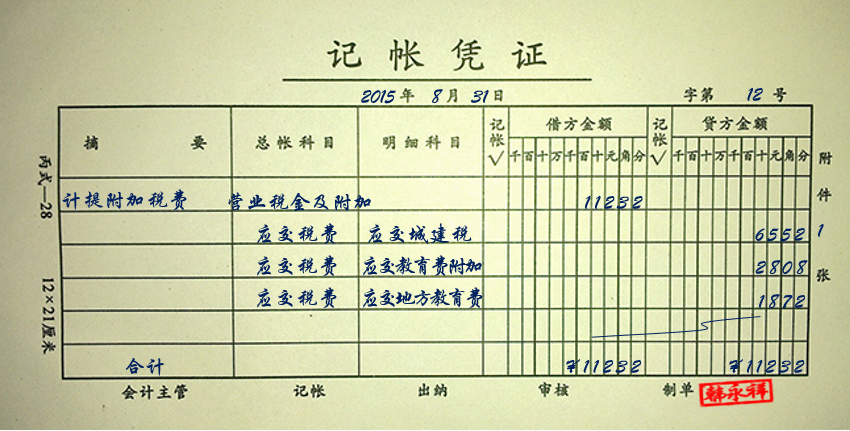 记帐凭证
2015年 8月 31日 字第 12 号
摘 要 总帐科目 明细科目 记帐√ 借方金额 记帐√ 贷方金额
千百十万千百十元角分 千百十万千百十元角分
计提附加税费 营业税金及附加 11232
应交税费 应交城建税 6552
应交税费 应交教育费附加 2808
应交税费 应交地方教育费 1872
合计 ¥11232 ¥11232
会计主管 记帐 出纳 审核 制单 韩永祥
附件 1 张
丙式—28 12×21厘米